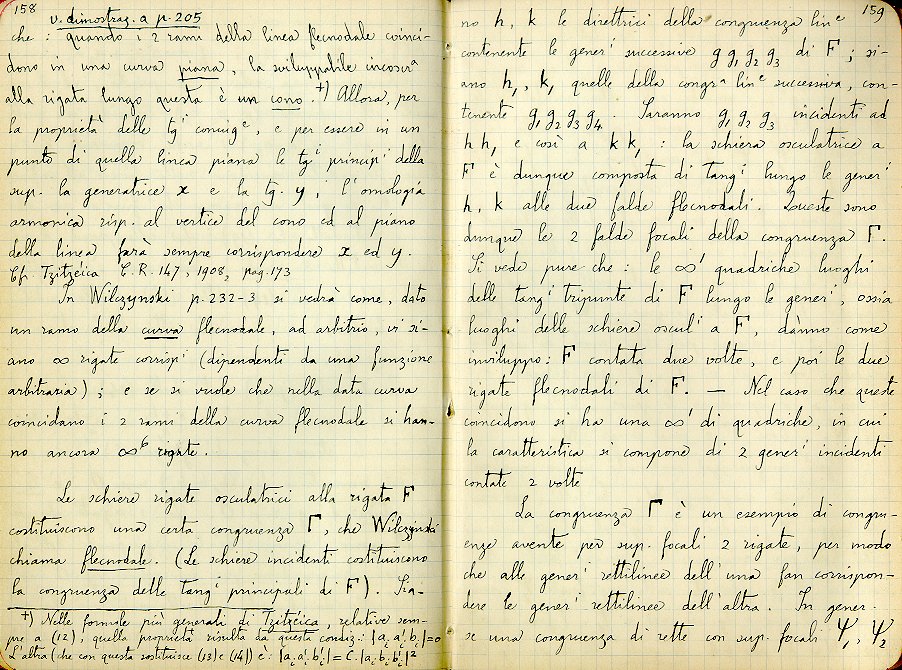 158
v. dimostraz. a p. 205
che: quando i 2 rami della linea flecnodale coinci-
dono in una curva piana, la sviluppabile circoscrᵃ
alla rigata lungo questa è un cono.†) Allora, per
la proprietà delle tgⁱ coniugᵉ, e per essere in un
punto di quella linea piana le tgⁱ princip.ⁱ della
sup. la generatrice x e la tg. y, l'omologia
armonica risp. al vertice del cono ed al piano
della linea farà sempre corrispondere x ed y.
Cfr. Tzitzéica C.R. 147, 1908₂ pag. 173
In Wilczynski p. 232-3 si vedrà come, dato
un ramo della curva flecnodale, ad arbitrio, vi si-
ano ∞ rigate corrispⁱ (dipendenti da una funzione
arbitraria); e se si vuole che nella data curva
coincidano i 2 rami della curva flecnodale si han-
no ancora ∞⁶ rigate.
Le schiere rigate osculatrici alla rigata F
costituiscono una certa congruenza Γ, che Wilczynski
chiama flecnodale. (Le schiere incidenti costituiscono
la congruenza delle tangⁱ principali di F). Sia-
†) Nelle formole più generali di Tzitzéica, relative sem-
pre a (12), quella proprietà risulta da questa condiz: |aᵢ a'ᵢ bᵢ|=0
L'altra (che con questa sostituisce (13) e (14)) è: |aᵢ a'ᵢ b'ᵢ| = C. |aᵢ bᵢ b'ᵢ|²
159
no h, k le direttrici della congruenza linᵉ
contenente le generⁱ successive g g₁ g₂ g₃ di F; si-
ano h₁ k₁ quelle della congrᵃ linᵉ successiva, con-
tenente g₁ g₂ g₃ g₄. Saranno g₁ g₂ g₃ incidenti ad
h h₁ e così a k k₁: la schiera osculatrice a
F è dunque composta di tangⁱ lungo le generⁱ
h, k alle due falde flecnodali. Queste sono
dunque le 2 falde focali della congruenza Γ.
Si vede pure che: le ∞¹ quadriche luoghi
delle tangⁱ tripunte di F lungo le generⁱ, ossia
luoghi delle schiere osculⁱ a F, dànno come
inviluppo: F contata due volte, e poi le due
rigate flecnodali di F. — Nel caso che queste
coincidono si ha una ∞¹ di quadriche, in cui
la caratteristica si compone di 2 generⁱ incidenti
contate 2 volte
La congruenza Γ è un esempio di congru-
enze avente per sup. focali 2 rigate, per modo
che alle generⁱ rettilinee dell'una fan corrispon-
dere le generⁱ rettilinee dell'altra. In gener.
se una congruenza di rette con sup. focali Ψ₁, Ψ₂